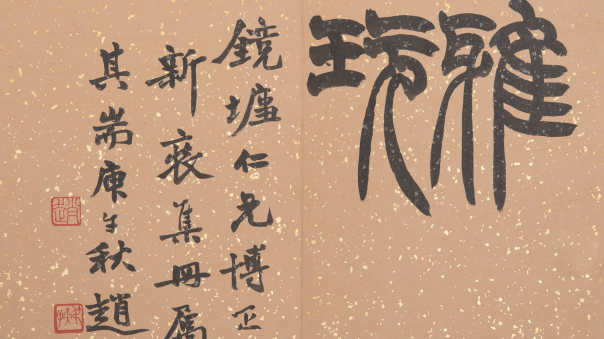 雅玩
鏡壚仁兄博正
新裒集冊屬
其耑庚午秋趙